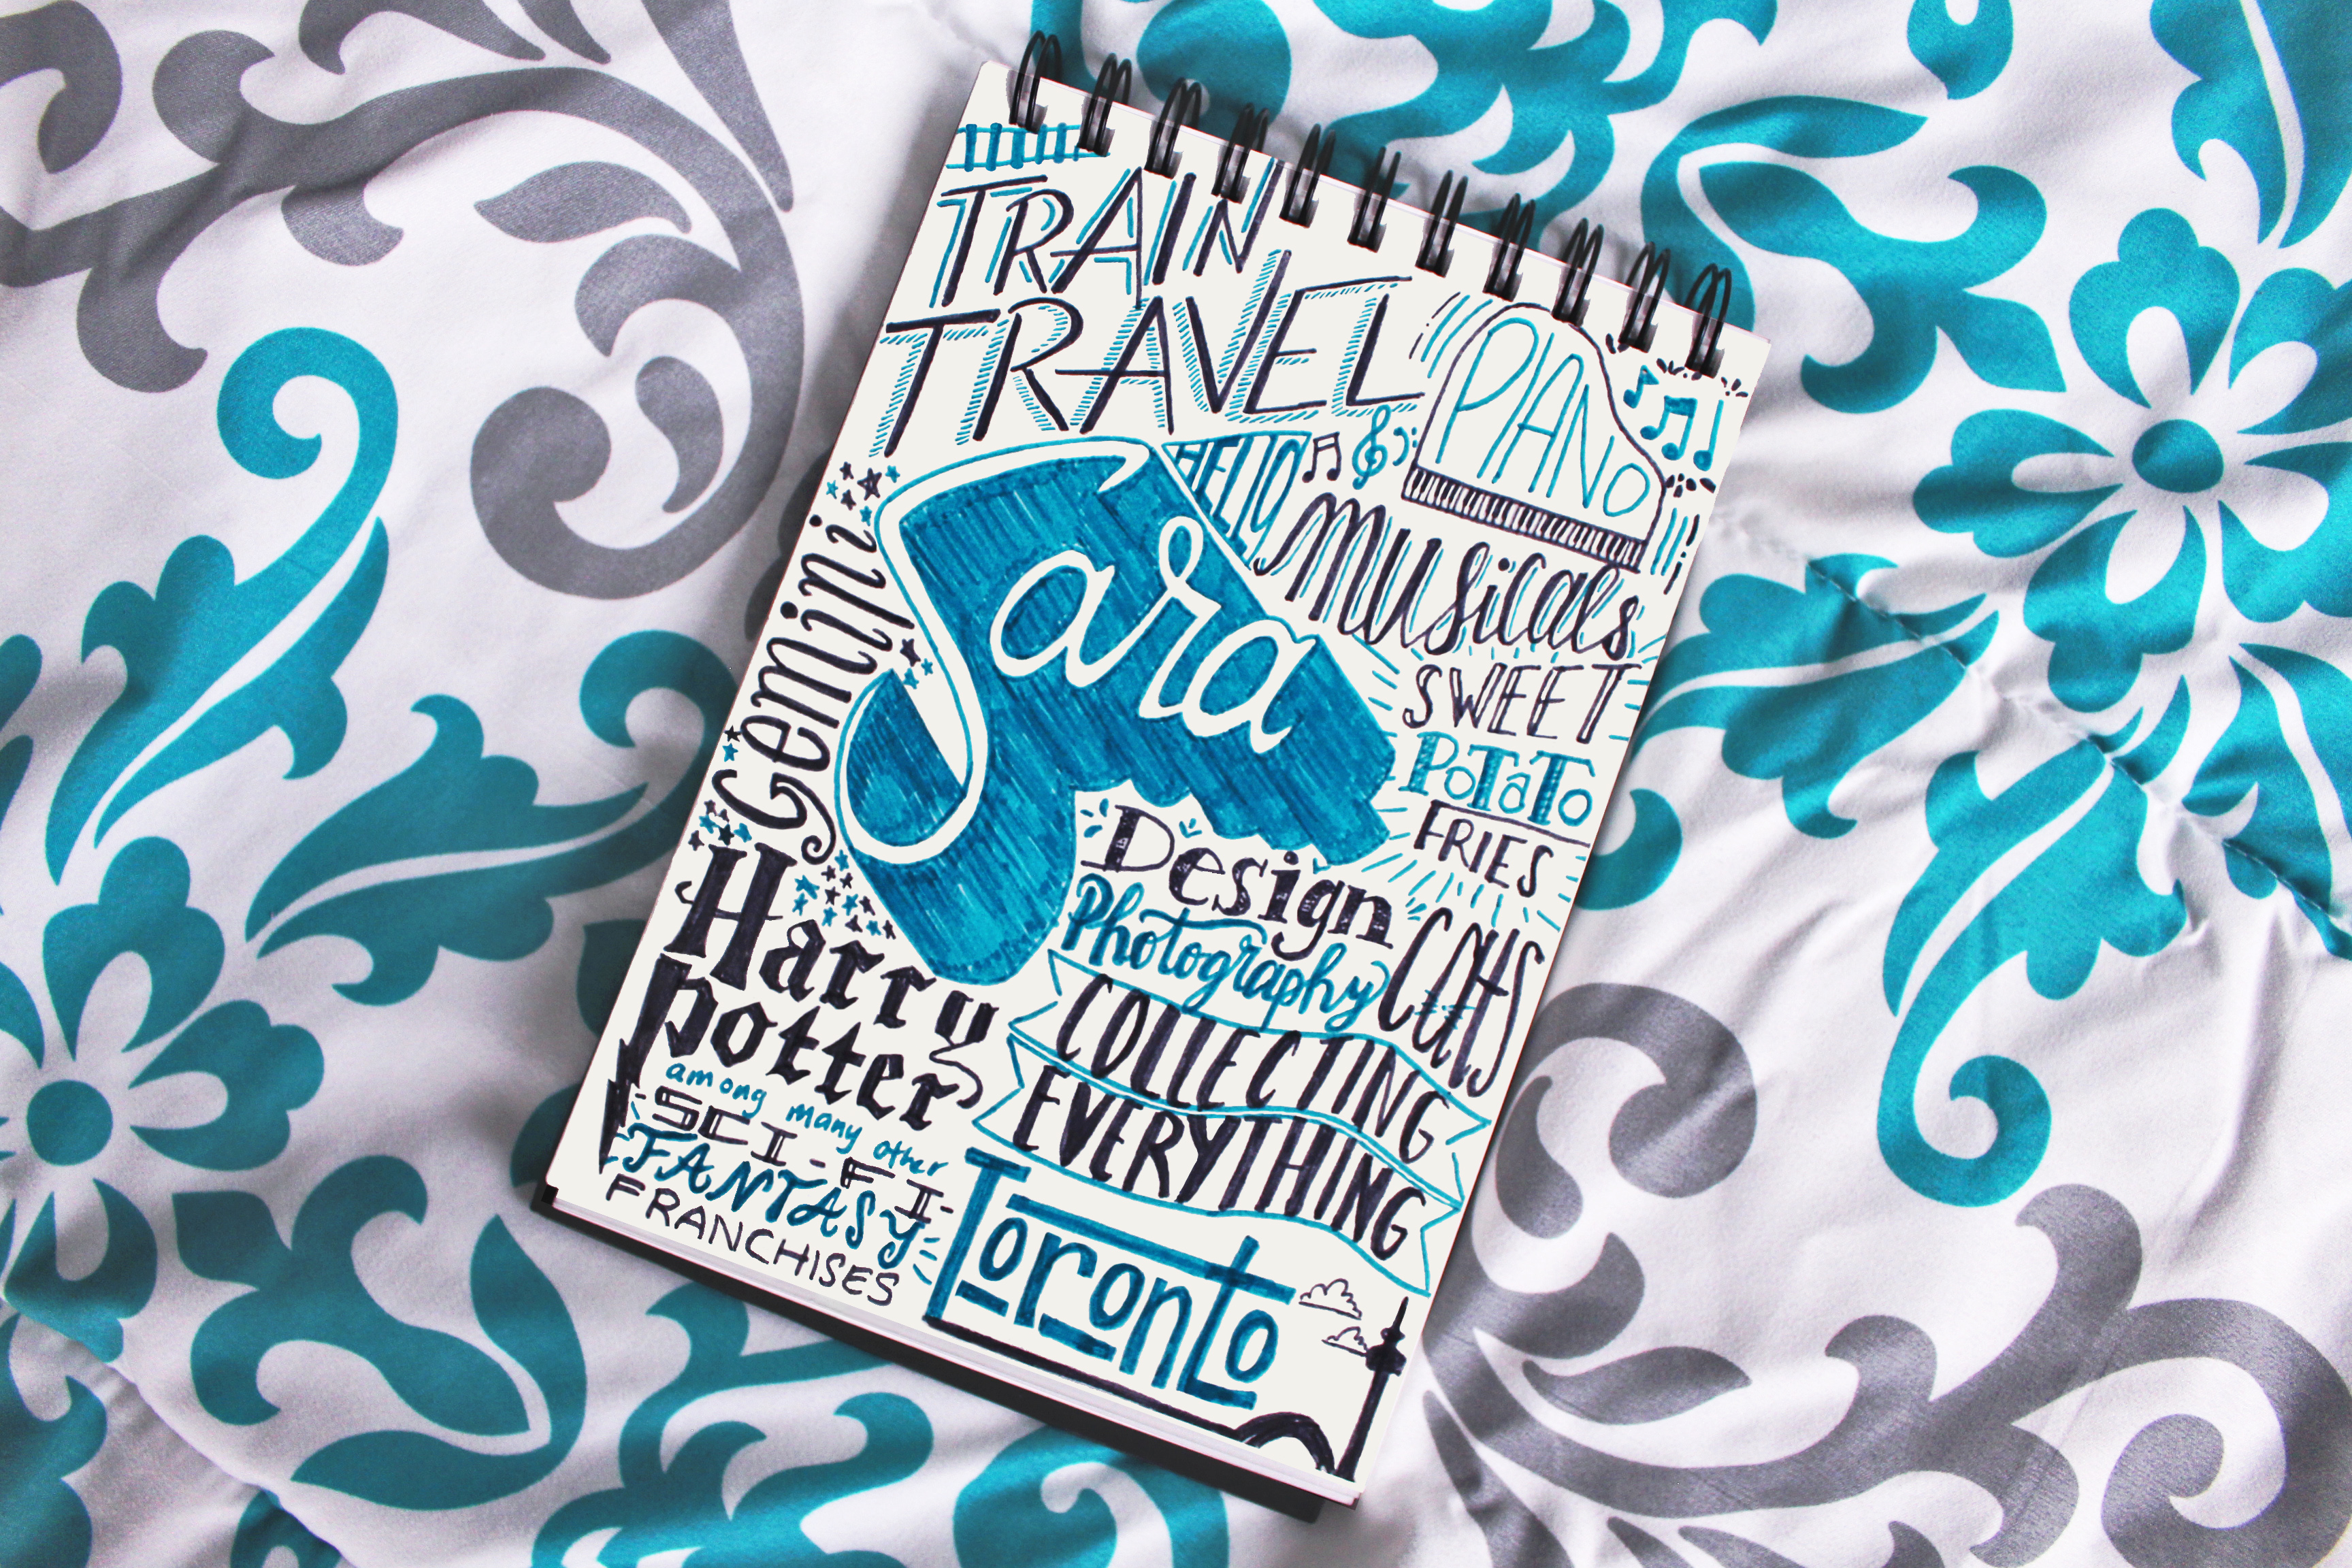 TRAIN
TRAVEL
PIANO
HELLO
Musicals
Sara
Gemini
SWEET
PoTaTo
FRIES
Design
Photography
Cats
COLLECTING
EVERYTHING
Harry
Potter
among many other
SCI-FI-
FANTASY
FRANCHISES
Toronto